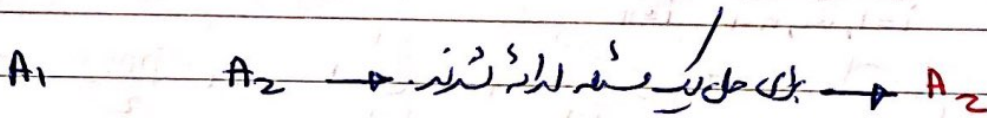 A1 A2 → برای حل یک مسئله ارائه شدند. → A2